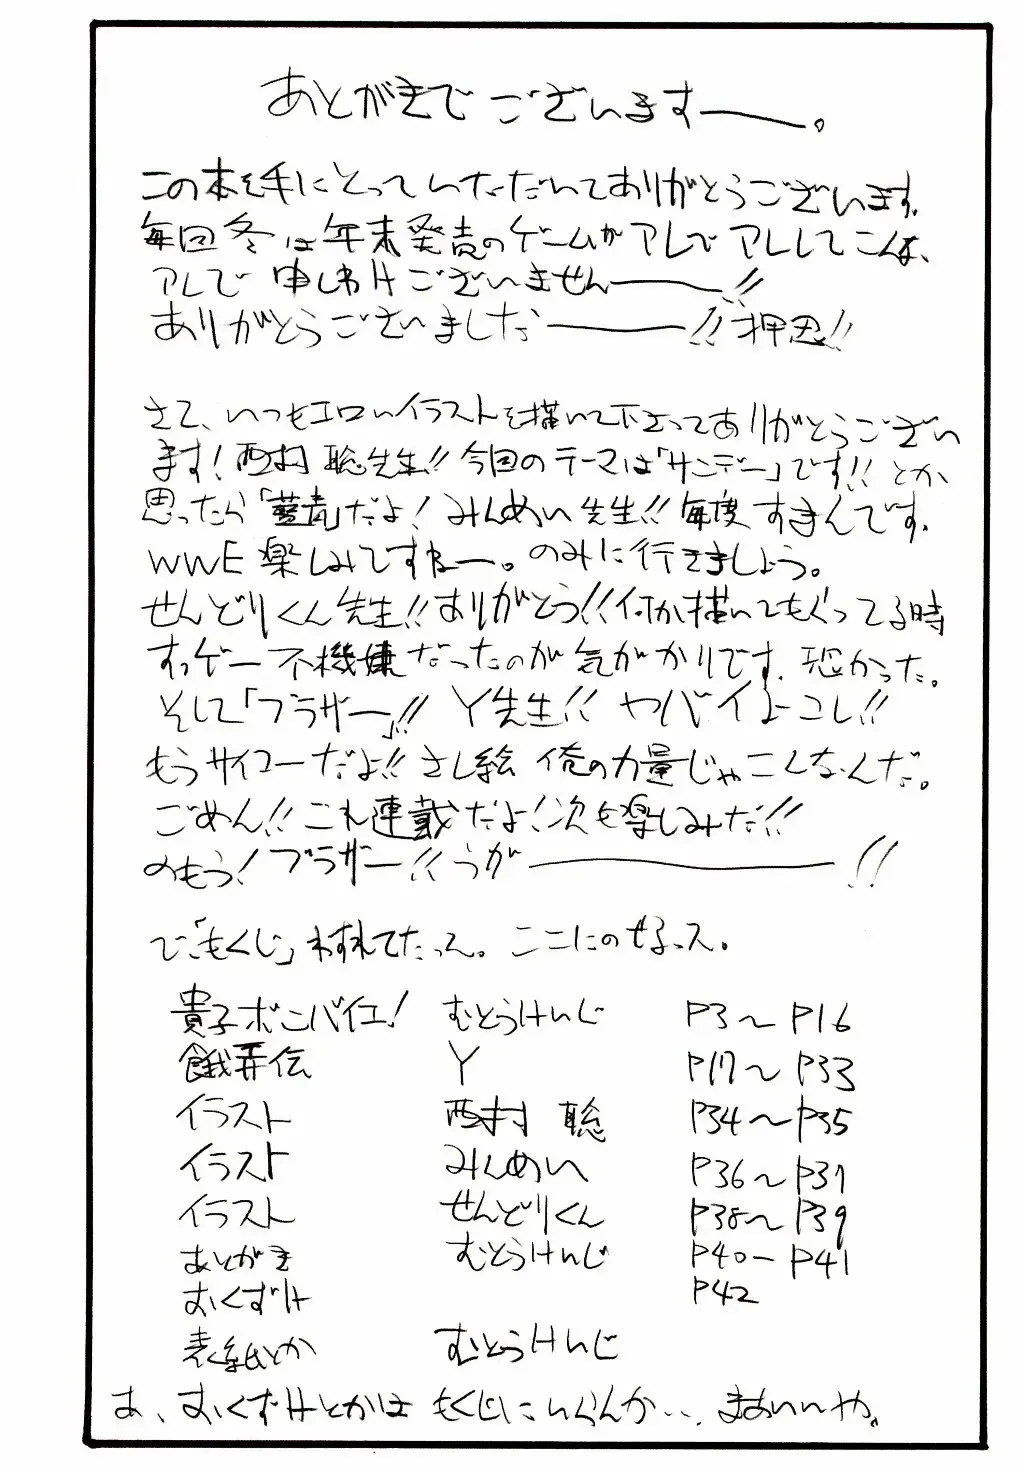 あとがきでございますー。
この本を手にとっていただいてありがとうございます。
毎回冬は年末発売のゲームがアレでアレしてこんな、
アレで申しわけございませんー!!
ありがとうございましたー!!押忍!!
さて、いつもエロいイラストを描いて下さってありがとうござい
ます!西村聡先生!!今回のテーマは「サンデー」です!!とか
思ったら「藍青」だよ!みんめい先生!!毎度すまんです。
WWE楽しみですねー。のみに行きましょう。
せんどりくん先生!!ありがとう!!何か描いてもぐってる時
すっげー不機嫌だったのが気がかりです。恐かった。
そして「ブラザー」!! Y先生!! ヤバイよコレ!!
もうサイコーだよ!!さし絵 俺の力量じゃこんなんだ。
ごめん!!これ連載だよ!次も楽しみだ!!
のもう!ブラザー!!うがー!!
で「もくじ」わすれてたっス。ここにのせるっス。
貴子ボンバイエ! むとうけいじ P3～P16
餓弄伝 Y P17～P33
イラスト 西村 聡 P34～P35
イラスト みんめい P36～P37
イラスト せんどりくん P38～P39
あとがき むとうけいじ P40ーP41
おくずけ P42
表紙とか むとうけいじ
あ、おくずけとかは もくじにいらんか… まあいいや。